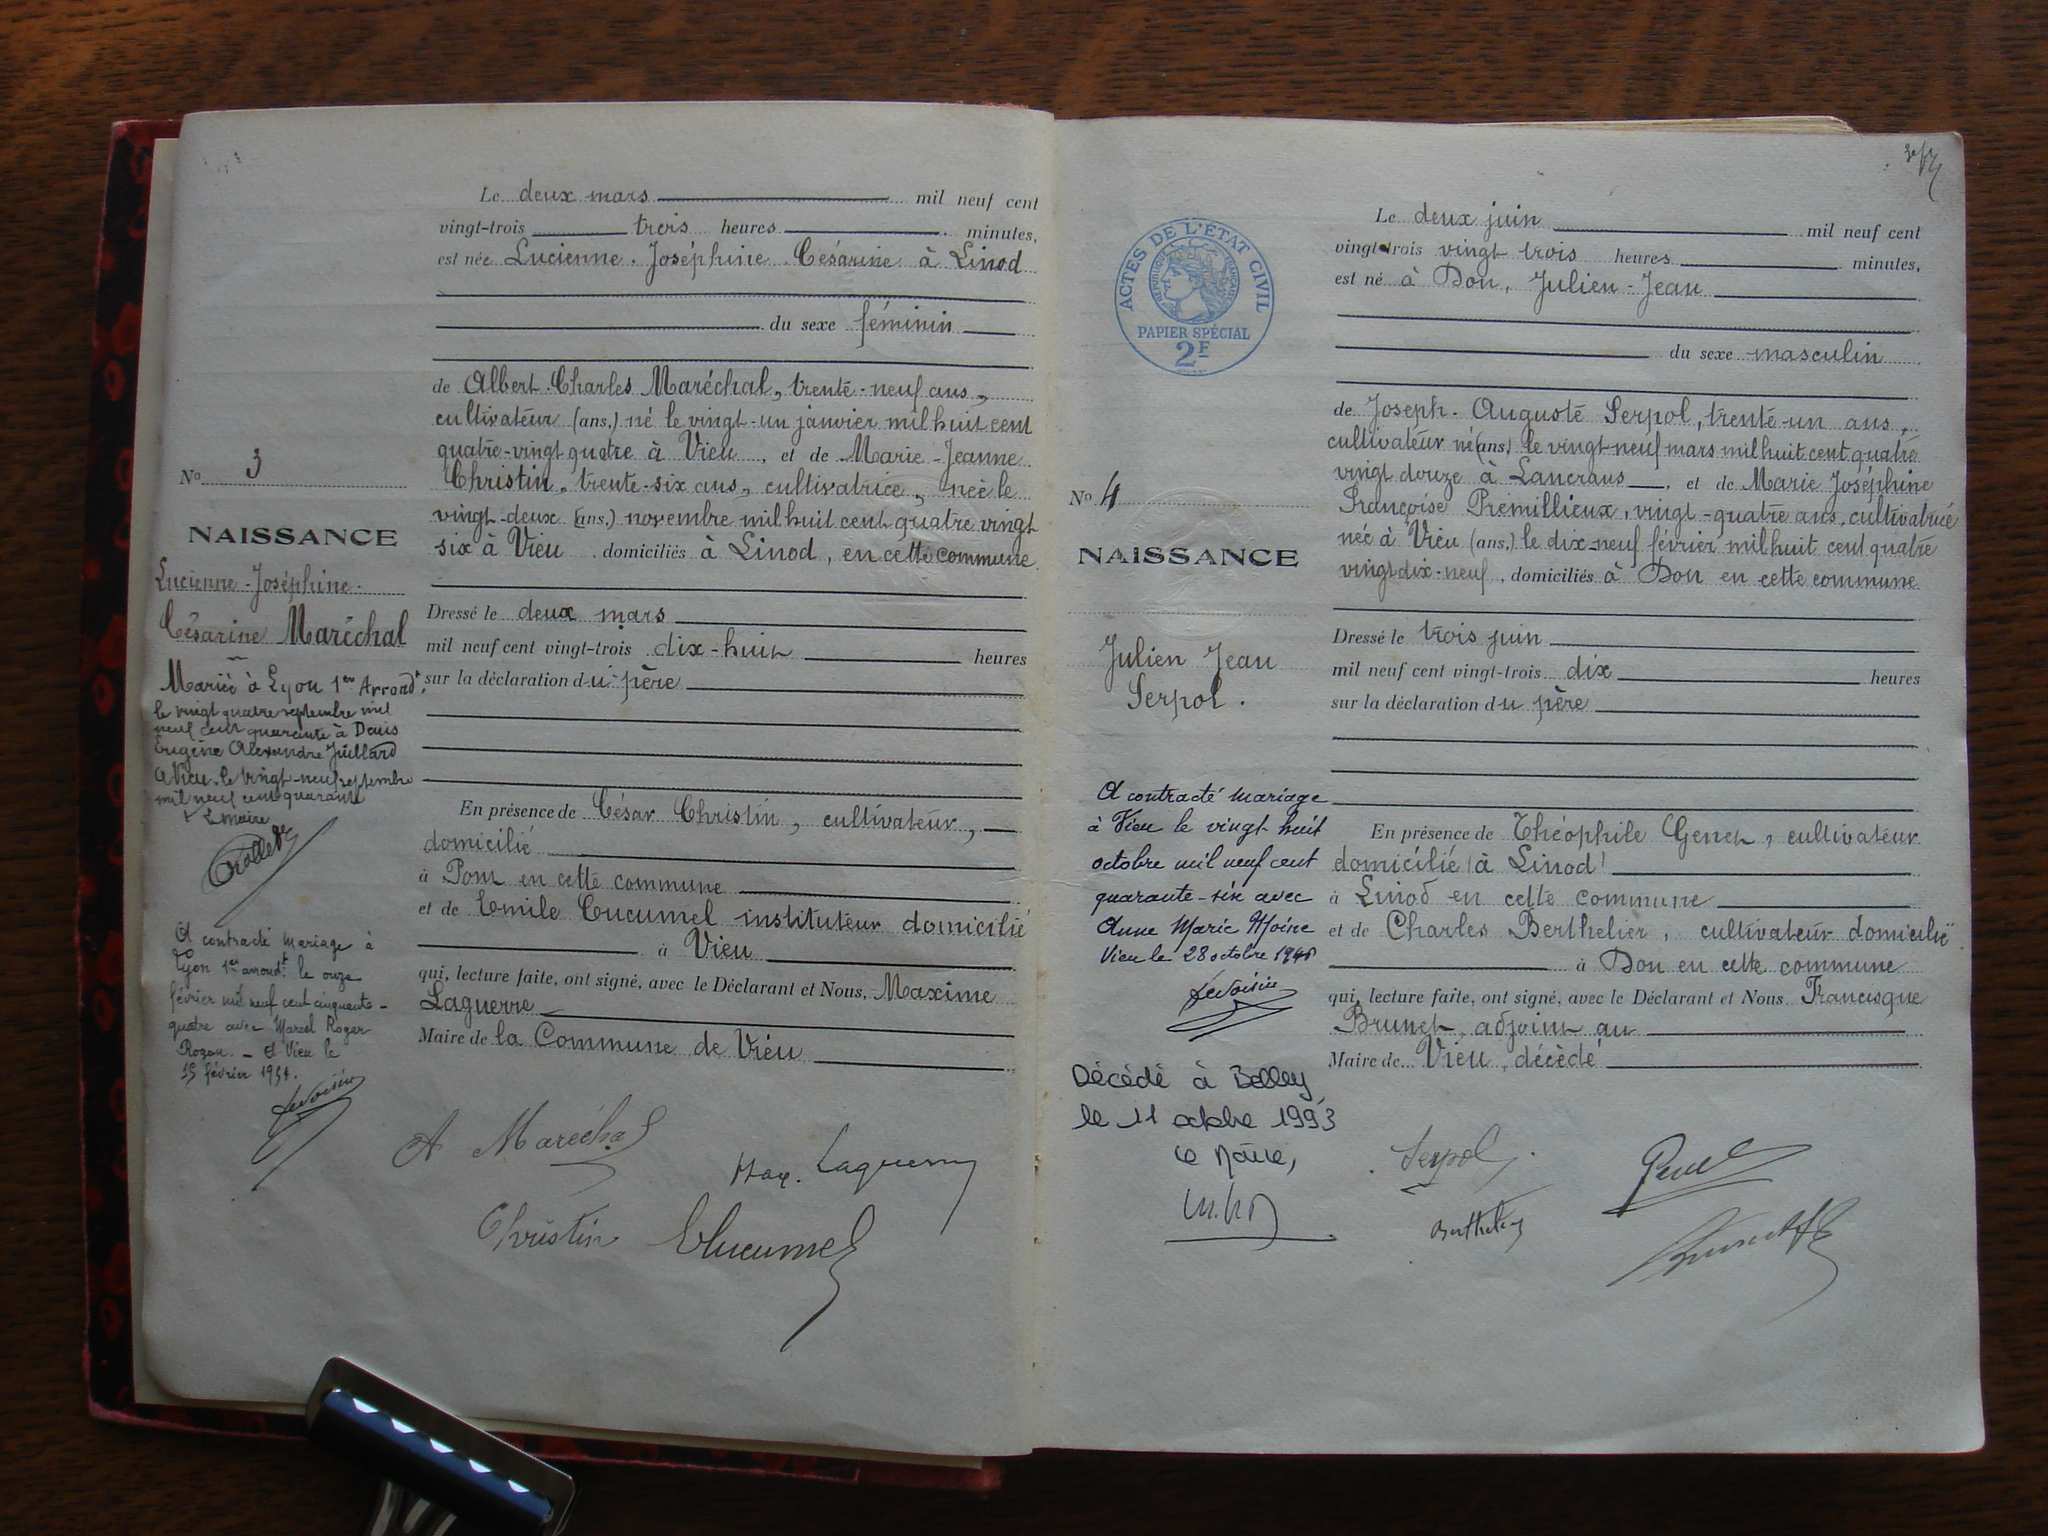 Le deux mars mil neuf cent
vingt-trois trois heures minutes,
est née Lucienne Joséphine Césarine à Linod
du sexe féminin
de Albert Charles Maréchal, trente-neuf ans,
cultivateur (ans,) né le vingt-un janvier mil huit cent
quatre-vingt quatre à Vieu, et de Marie-Jeanne
Christin, trente-six ans, cultivatrice, née le
vingt-deux (ans,) novembre mil huit cent quatre vingt
six à Vieu, domiciliés à Linod, en cette commune
Dressé le deux mars
mil neuf cent vingt-trois dix-huit heures
sur la déclaration du père
En présence de César Christin, cultivateur,
domicilié
à Pont en cette commune
et de Emile Cucumel instituteur domicilié
à Vieu
qui, lecture faite, ont signé, avec le Déclarant et Nous, Maxime
Laguerre
Maire de la Commune de Vieu
A Maréchal
Max. Laguerre
Christin
ECucumel
No 3
NAISSANCE
Lucienne-Joséphine-
Césarine Maréchal
Mariée à Lyon 1er Arrondt,
le vingt quatre septembre mil
neuf cent quarante à Denis
Eugène Alexandre Juillard
A Vieu, le vingt-neuf septembre
mil neuf cent quarante
Le Maire
A contracté mariage à
Lyon 1er arrondt le onze
février mil neuf cent cinquante-
quatre avec Marcel Roger
Rozan. - A Vieu le
15 février 1954.
ACTES DE L'ÉTAT CIVIL
RÉPUBLIQUE FRANÇAISE
PAPIER SPÉCIAL
2F
Le deux juin mil neuf cent
vingt-trois vingt trois heures minutes,
est né à Don, Julien-Jean
du sexe masculin
de Joseph-Auguste Serpol, trente-un ans,
cultivateur né (ans,) le vingt-neuf mars mil huit cent quatre
vingt douze à Lancrans, et de Marie Joséphine
Françoise Prémillieux, vingt-quatre ans, cultivatrice
née à Vieu (ans,) le dix-neuf février mil huit cent quatre
vingt dix-neuf, domiciliés à Don en cette commune
Dressé le trois juin
mil neuf cent vingt-trois dix heures
sur la déclaration du père
En présence de Théophile Genet, cultivateur
domicilié (à Linod)
à Linod en cette commune
et de Charles Berthelier, cultivateur domicilié
à Don en cette commune
qui, lecture faite, ont signé, avec le Déclarant et Nous Francisque
Brunet, adjoint au
Maire de Vieu, décédé
Serpol
Genet
Berthelier
Brunet
No 4
NAISSANCE
Julien Jean
Serpol.
A contracté mariage
à Vieu le vingt-huit
octobre mil neuf cent
quarante-six avec
Anne Marie Moine
Vieu le 28 octobre 1946
Décédé à Belley
le 11 octobre 1993
Le Maire,